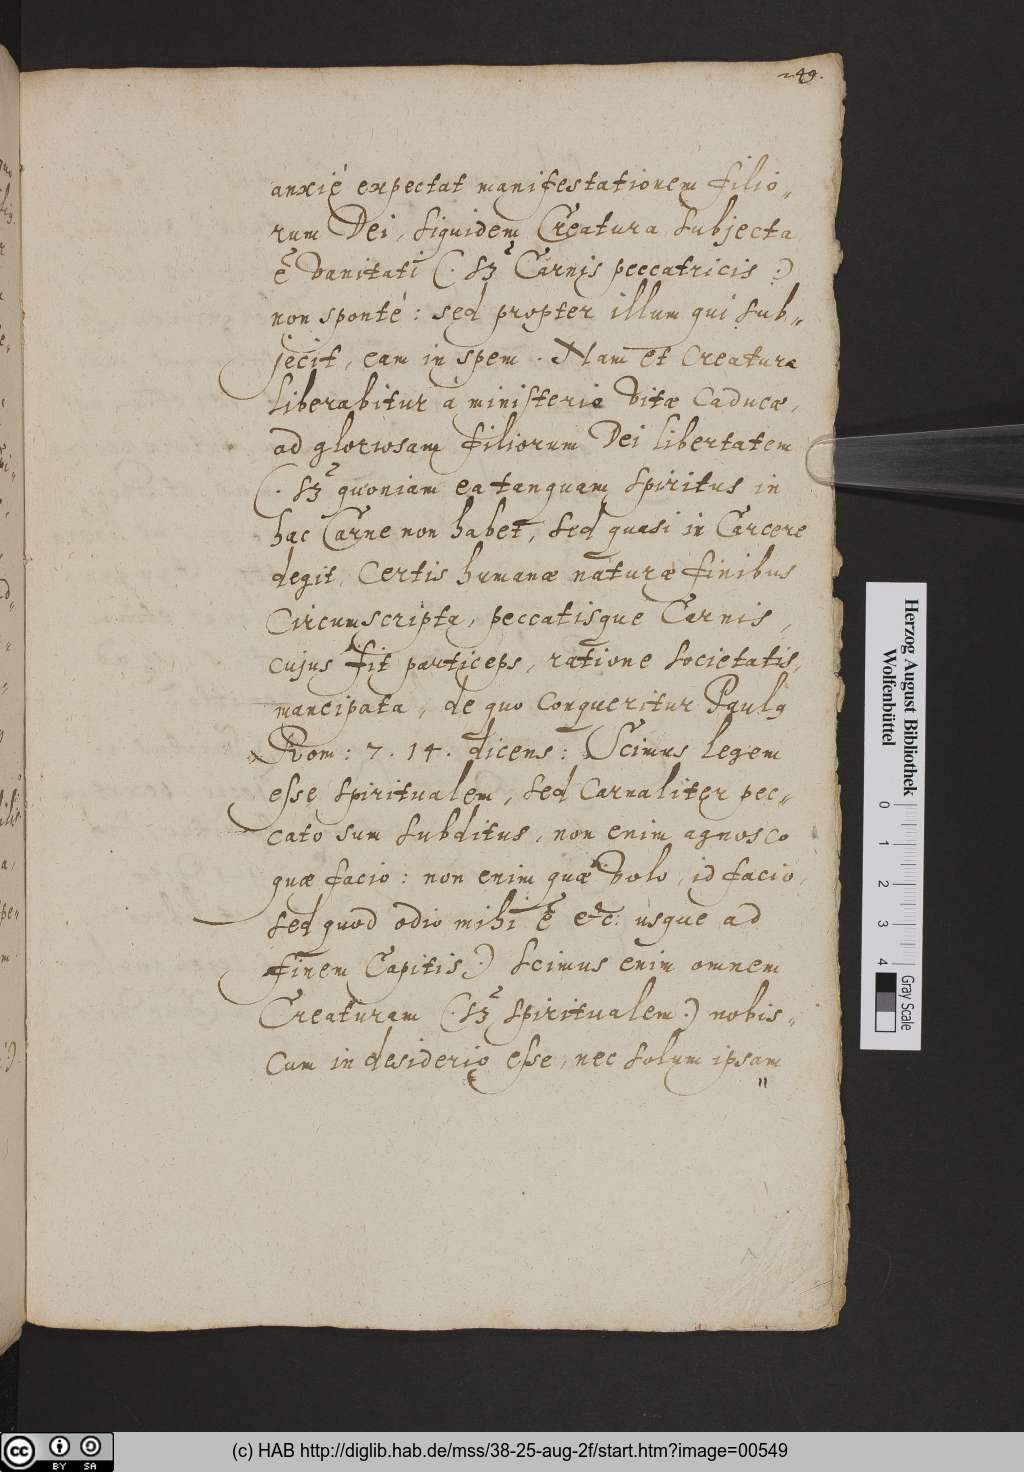 249.
anxiè expectat manifestationem filio„
rum Dei, siquidem Creatura subjecta
ẽ vanitati (: sꝫ Carnis peccatricis :)
non spontè: sed propter illum qui sub„
jecit, eam in spem. Nam et Creatura
liberabitur à ministerio vitæ caducæ,
ad gloriosam filiorum Dei libertatem
(: sꝫ quoniam ea tanquam spiritus in
hac Carne non habet, sed quasi in Carcere
degit, Certis humanæ naturæ finibus
Circumscripta, peccatisque Carnis,
cujus fit particeps, ratione societatis,
mancipata, de quo Conqueritur Paulꝰ
Rom: 7. 14. dicens: Scimus legem
esse spiritualem, sed Carnaliter pec„
cato sum subditus, non enim agnosco
quæ facio: non enim quæ volo, id facio,
sed quod odio mihi ẽ &c: usque ad
finem Capitis :) Scimus enim omnem
Creaturam (: sꝫ spiritualem :) nobis„
Cum in desiderio esse, nec solum ipsam
Herzog August Bibliothek
Wolfenbüttel
0 1 2 3 4
Gray Scale
CC BY SA
(c) HAB http://diglib.hab.de/mss/38-25-aug-2f/start.htm?image=00549